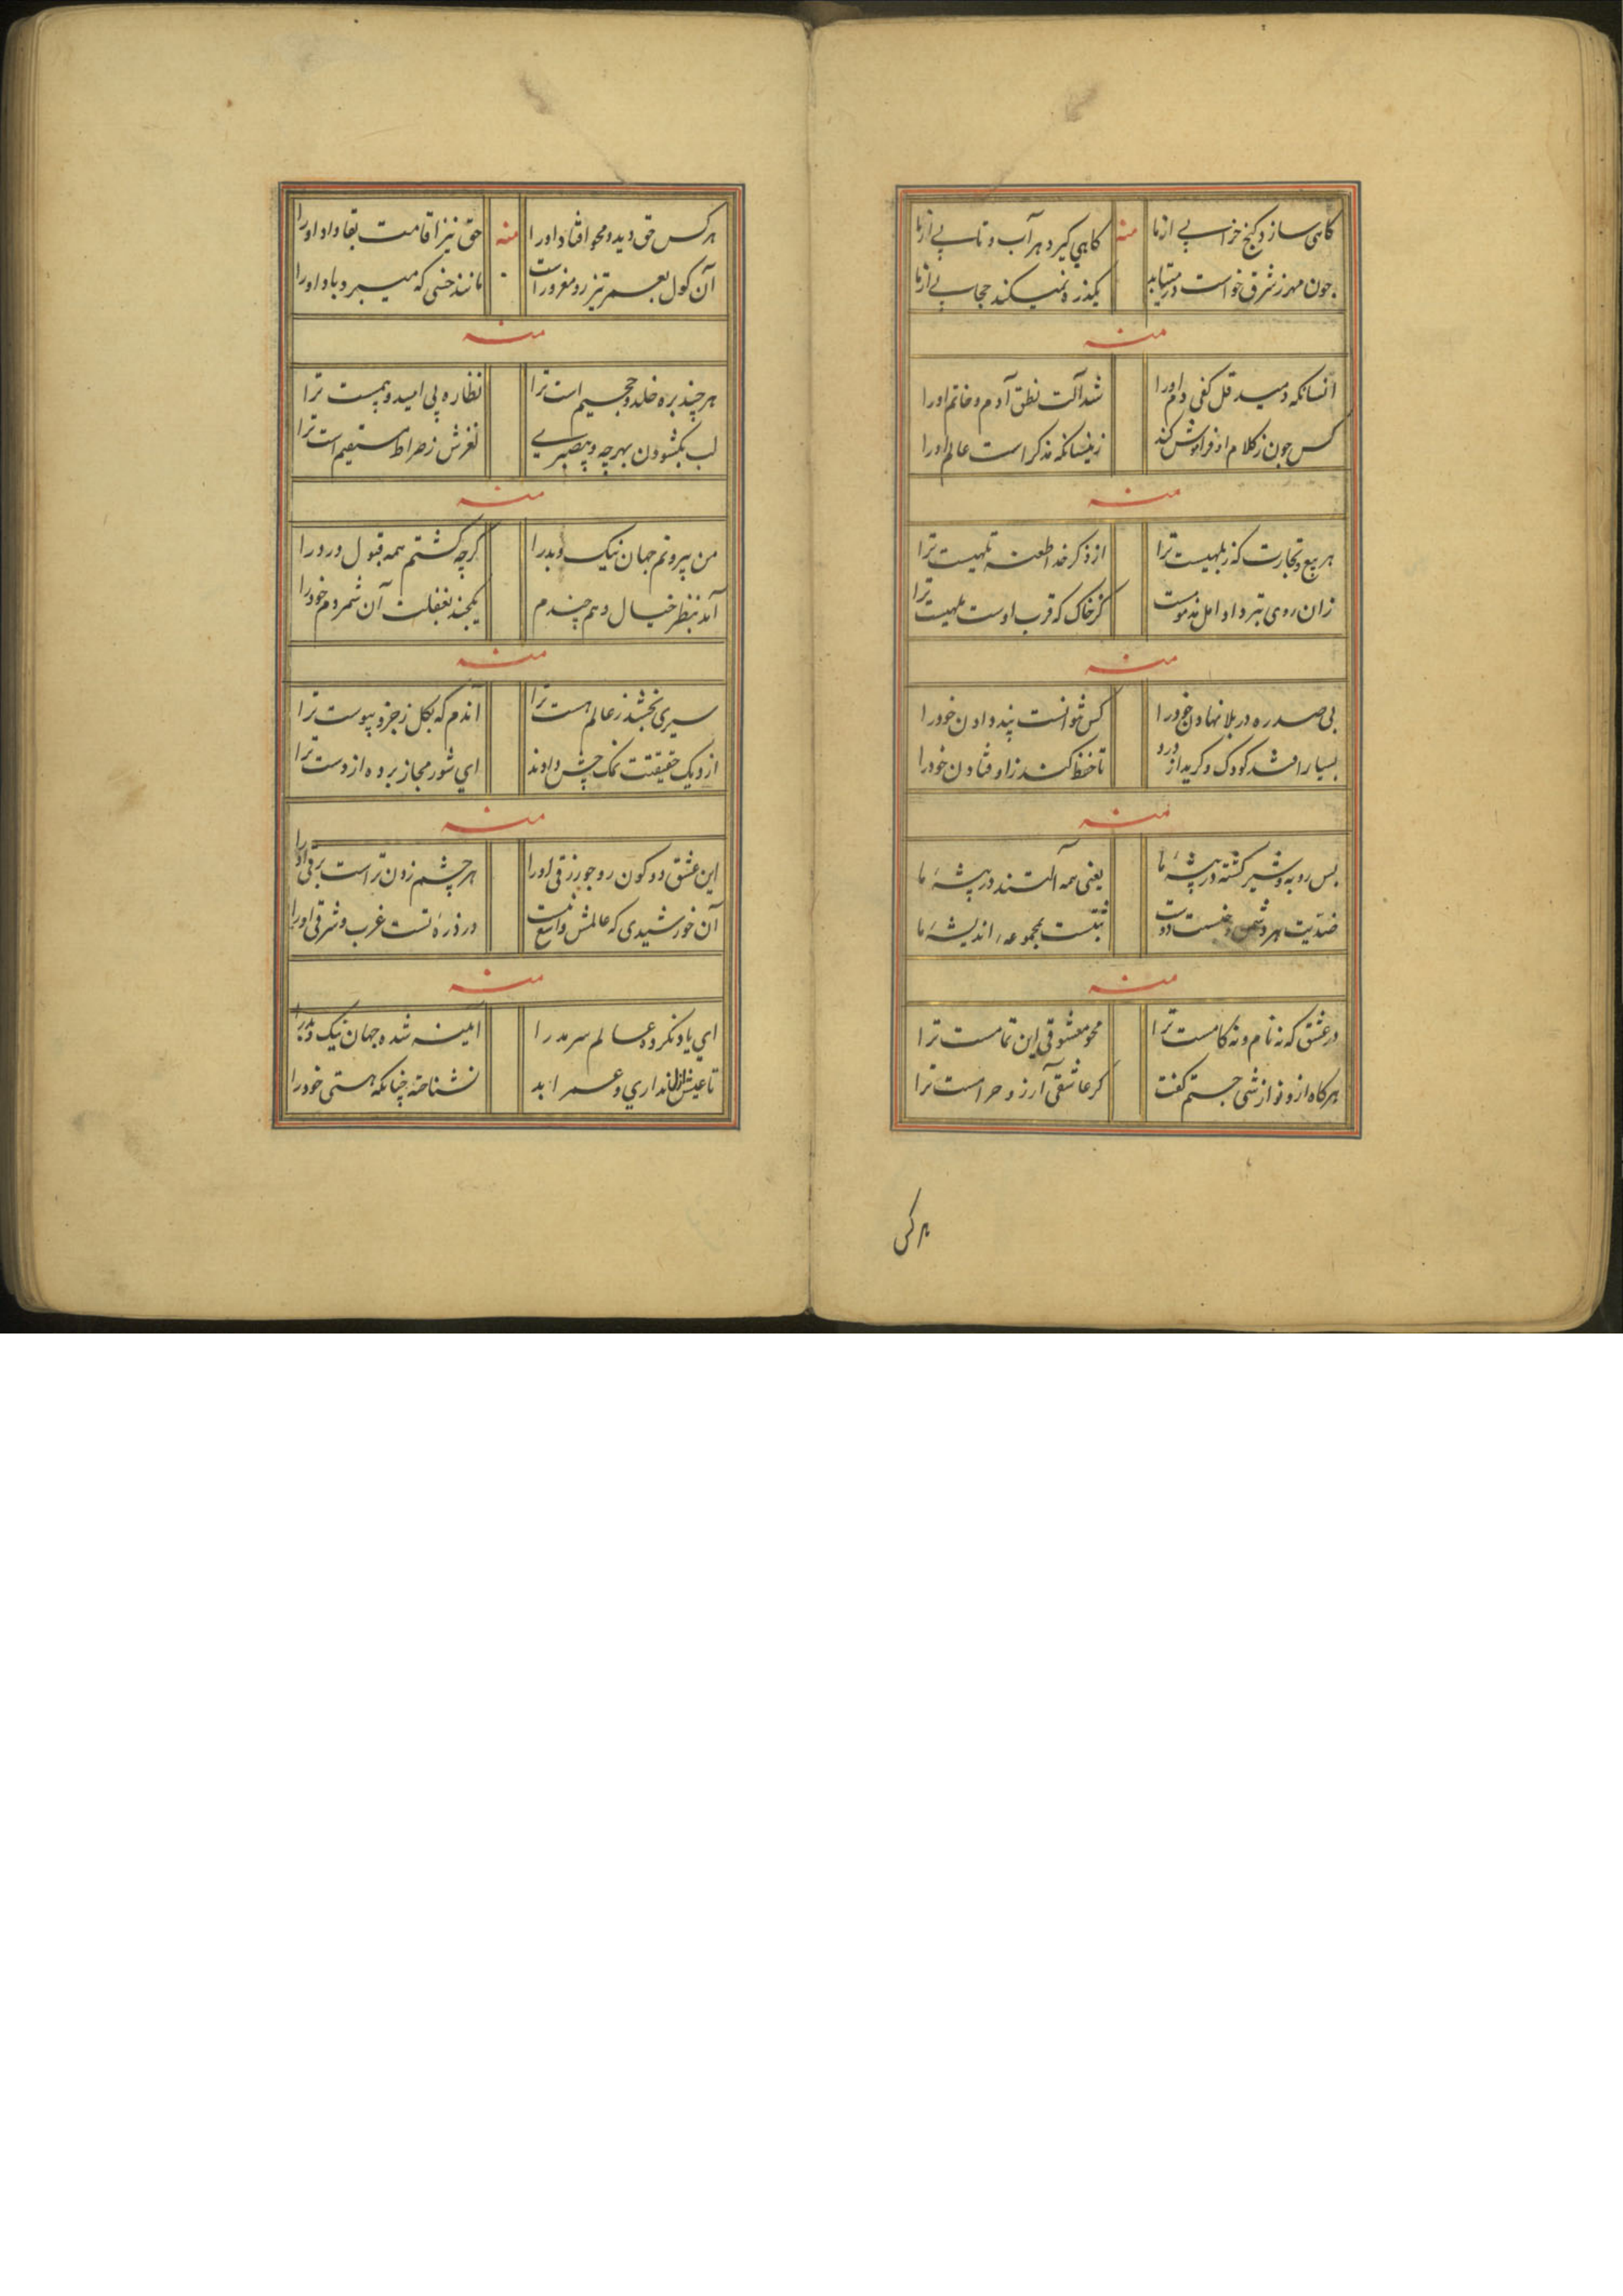 کاهی سازد کنج خرابی از ما
منه
کاهی کیرد هر آب و تابی از ما
چون مهر ز شرق خواست در
یکذره نمیکند حجابی از ما
منه
انسانکه دمید قل کفی دم اورا
شد آلت نطق آدم و خاتم اورا
کس چون ز کلام او فراموش کند
زینسانکه مذکر است عالم اورا
منه
هر بیع و تجارت که ز بلهیست ترا
از ذکر خدا طعنه تلهیست ترا
زان روی تبرد او امل مذموست
کز خاک که قرب اوست ترا
منه
بی صد ره در بلا نهادن خودرا
کس نتوانست پند دادن خودرا
بسیار افتد کودک و کرید از درد
تا حفظ کند ز اوفتادن خودرا
منه
بس روبه و شیر کشته در بیشهٔ ما
یعنی همه آلتند در پیشهٔ ما
ضدیت مهر و دوست
ثبتست بمجموعهٔ اندیشهٔ ما
منه
در عشق که نه نام و نه کامست ترا
محو معشوقی این تمامست ترا
هرکاه ازو نوازشی جستم کفت
کر عاشقی آرزو حرامست ترا
هر کس
هر کس حق دید و محو افتاد اورا
منه
حق نیز اقامت بقا داد اورا
آن کول بعمر تیز رو مغرور است
مانند خسی که میبرد باد اورا
منه
هر چند بره خلد و جحیم است ترا
نظاره پی امید و بیمست ترا
لب بکشودن بهرچه و بیصبری
لغزش ز صراط مستقیم است ترا
منه
من پیر و تم جهان نیک و بدرا
کرچه کشتم همه قبول و ردرا
آمد بنظر خیال و هم چندم
یکچند بغفلت آن شمردم خودرا
منه
سیری نخشد ز عالم هست ترا
آندم که بکل ز جزو پیوست ترا
از دیک حقیقتت نمک چش دادند
ای شور مجاز برده از دست ترا
منه
این عشق دو کون رو جو رزقی اورا
هر چشم زدن تراست برقی اورا
آن خورشیدی که عالمش واسع نیست
در ذرهٔ تست غرب و شرقی اورا
منه
ای یاد نکرده عالم سرمد را
آینه شده جهان نیک و بد را
تا عیش ازل نداری و عمر ابد
نشناختهٔ چنانکه هستی خودرا